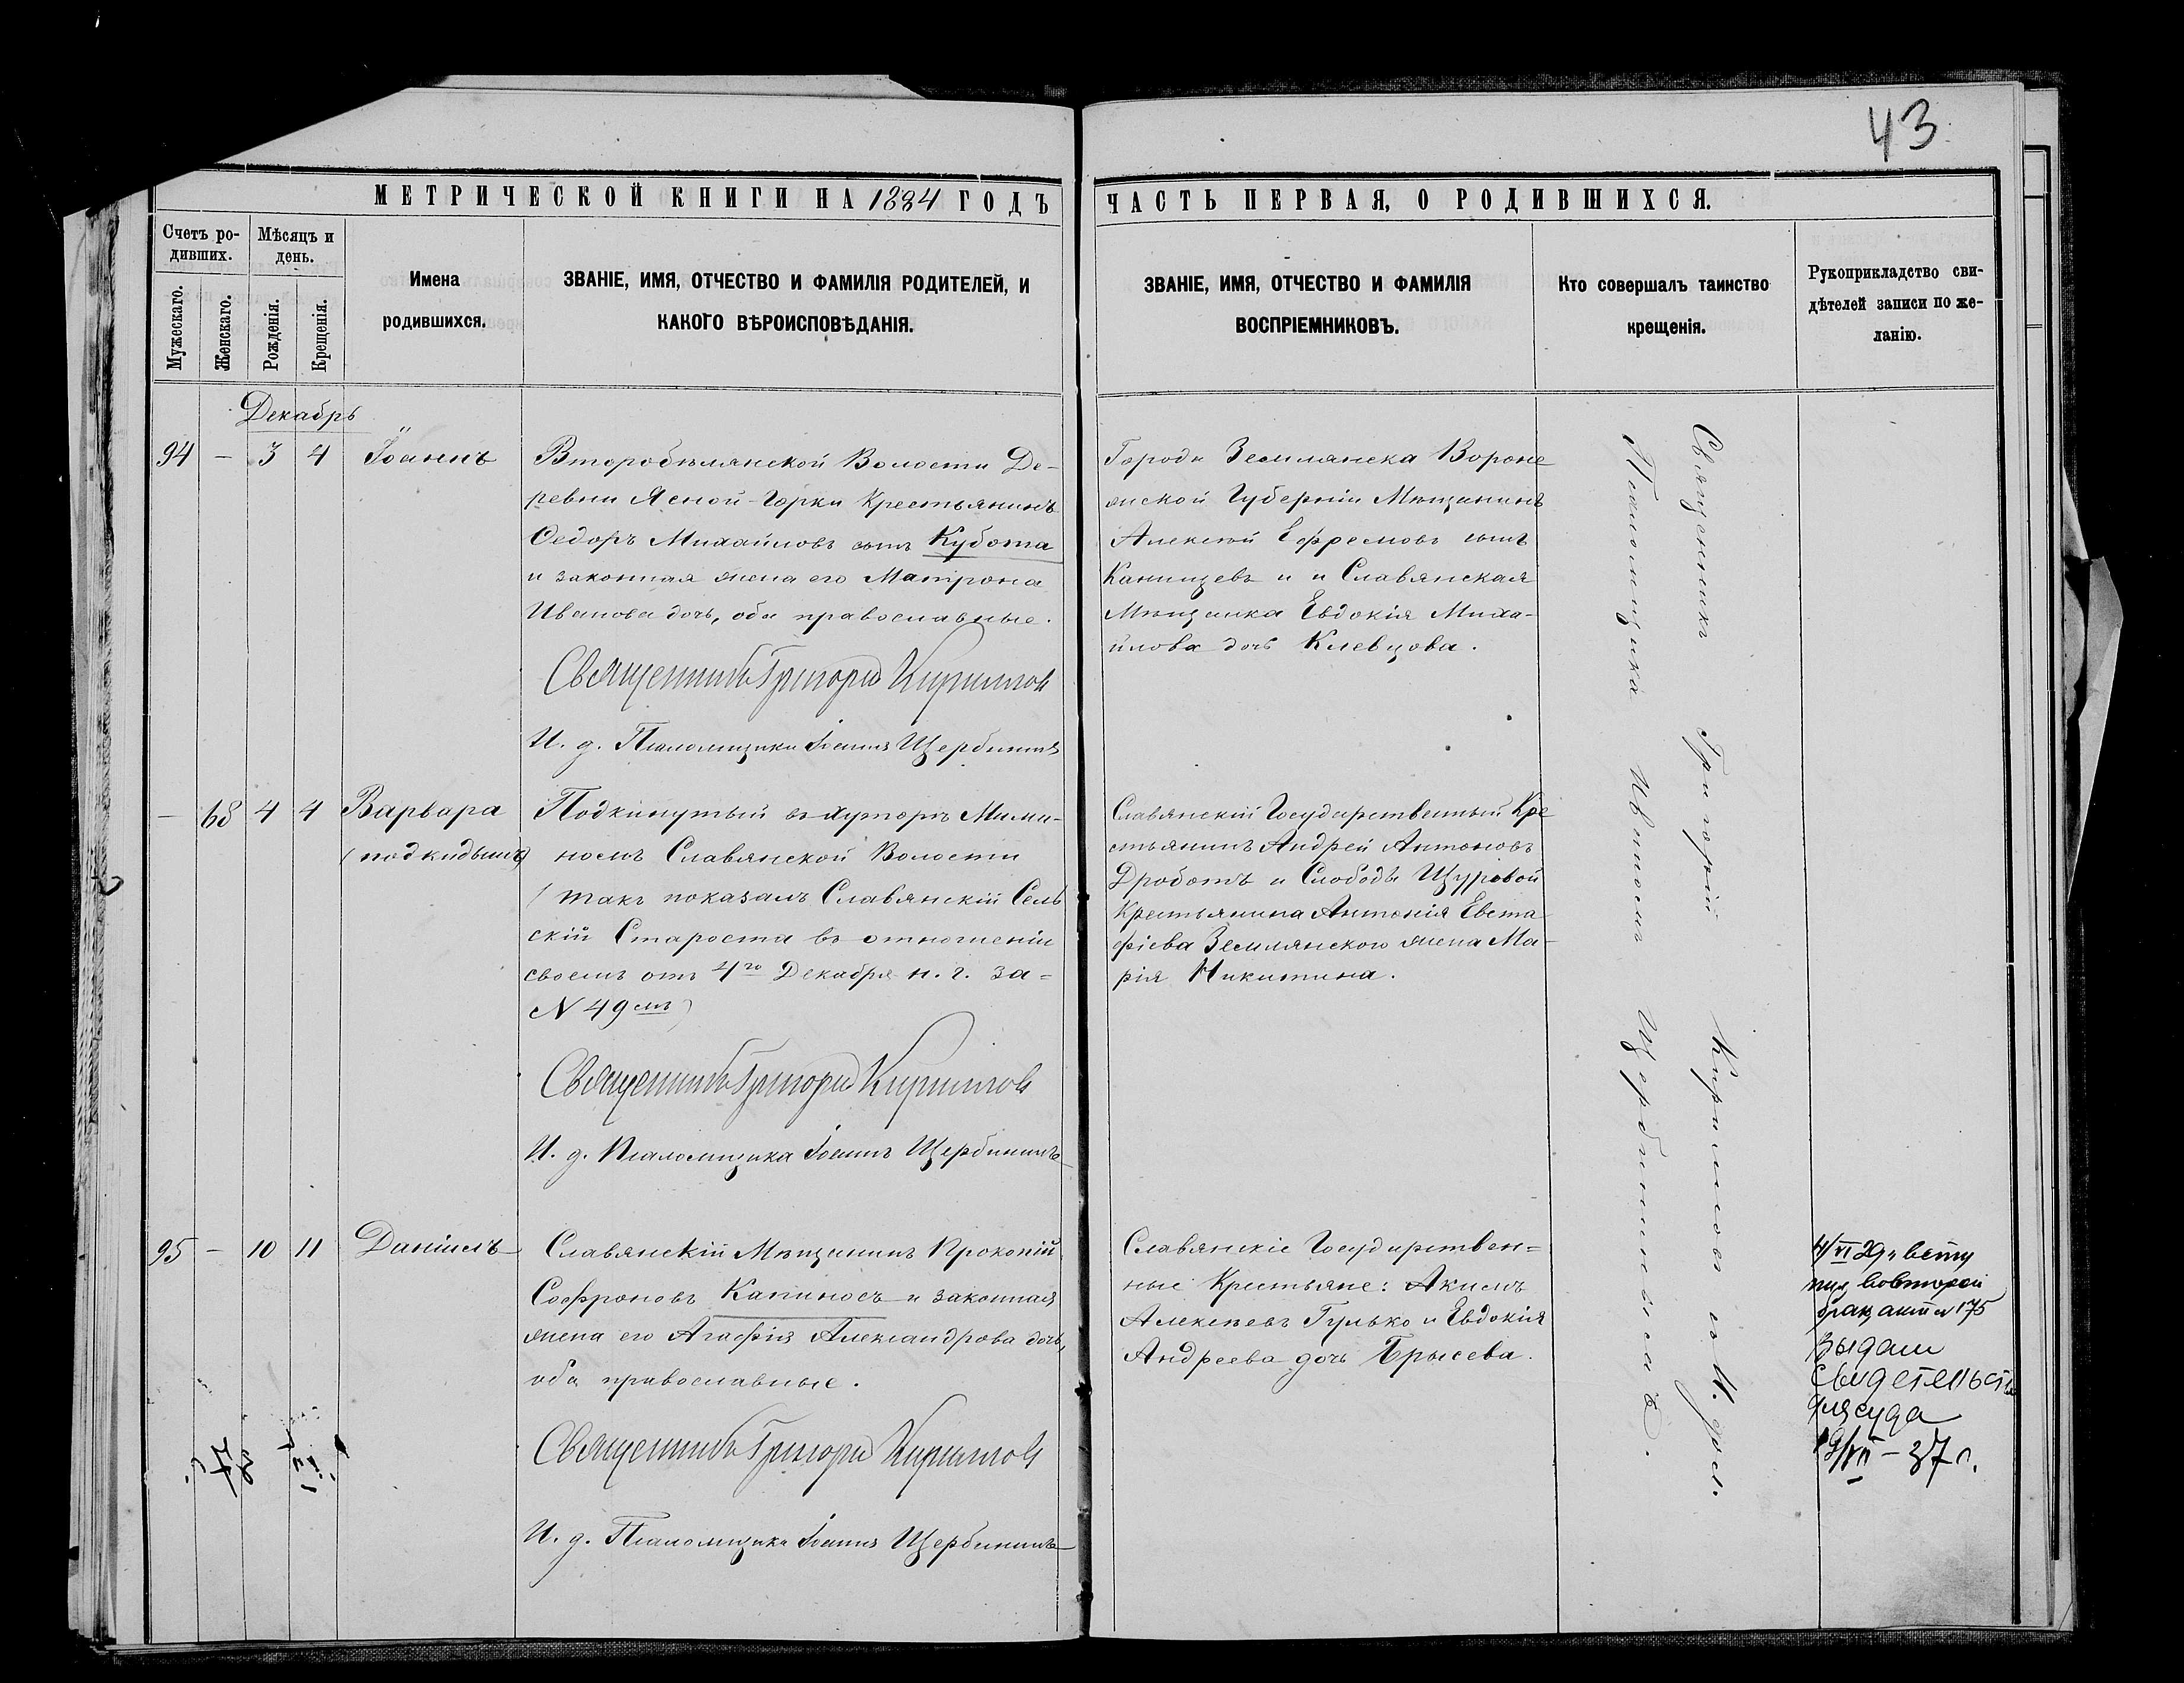 43.
МЕТРИЧЕСКОЙ КНИГИ НА 1884 ГОДЪ
ЧАСТЬ ПЕРВАЯ, О РОДИВШИХСЯ.
Счетъ ро-
дивших.
Мужескаго.
Женскаго.
Мѣсяцъ и
день.
Рожденія.
Крещенія.
Имена
родившихся.
ЗВАНІЕ, ИМЯ, ОТЧЕСТВО И ФАМИЛІЯ РОДИТЕЛЕЙ, И
КАКОГО ВѢРОИСПОВѢДАНІЯ.
ЗВАНІЕ, ИМЯ, ОТЧЕСТВО И ФАМИЛІЯ
ВОСПРІЕМНИКОВЪ.
Кто совершалъ таинство
крещенія.
Рукоприкладство сви-
дѣтелей записи по же-
ланію.
Декабрь
94 – 3 4 Іоаннъ
Второбѣлянской Волости Де-
ревни Ясной-Горки Крестьянинъ
Федоръ Михайловъ сынъ Кубота
и законная жена его Матрона
Иванова дочь, оба православные.
Священникъ Григорій Кириллов
И. д. Псаломщика Іоаннъ Щербининъ
Города Землянска Вороне
жской Губерніи Мѣщанинъ
Алексѣй Ефремовъ сынъ
Канищевъ и и Славянская
Мѣщанка Евдокія Миха-
йлова дочь Клевцова.
– 68 4 4 Варвара
(подкидышъ)
Подкинутый въ хуторѣ Мими-
номъ Славянской Волости
(такъ показалъ Славянскій Сель
скій Староста въ отношеніи
своемъ отъ 4го Декабря н. г. за=
N 49емъ)
Священникъ Григорій Кириллов
И. д. Псаломщика Іоаннъ Щербининъ
Славянскій Государственный Кре
стьянинъ Андрей Антоновъ
Дроботъ и Слободы Щуровой
Крестьянина Антонія Евста
фіева Землянского жена Ма-
рія Никитина.
95 – 10 11 Даніилъ
Славянскій Мѣщанинъ Прокопій
Софроновъ Капиносъ и законная
жена его Агафія Александрова дочь,
оба православные.
Священникъ Григорій Кириллов
И. д. Псаломщика Іоаннъ Щербининъ
Славянскіе Государствен=
ные Крестьяне: Акимъ
Алексѣевъ Гулько и Евдокія
Андреева дочь Брысева.
Священникъ Григорій Кирилловъ съ И. дол.
Псаломщика Иваномъ Щербининымъ.
4/VI 29г. всту
пил вовторой
брак акт N 175
Выдам
Свидетельств
для суда
19/VII – 37 г.